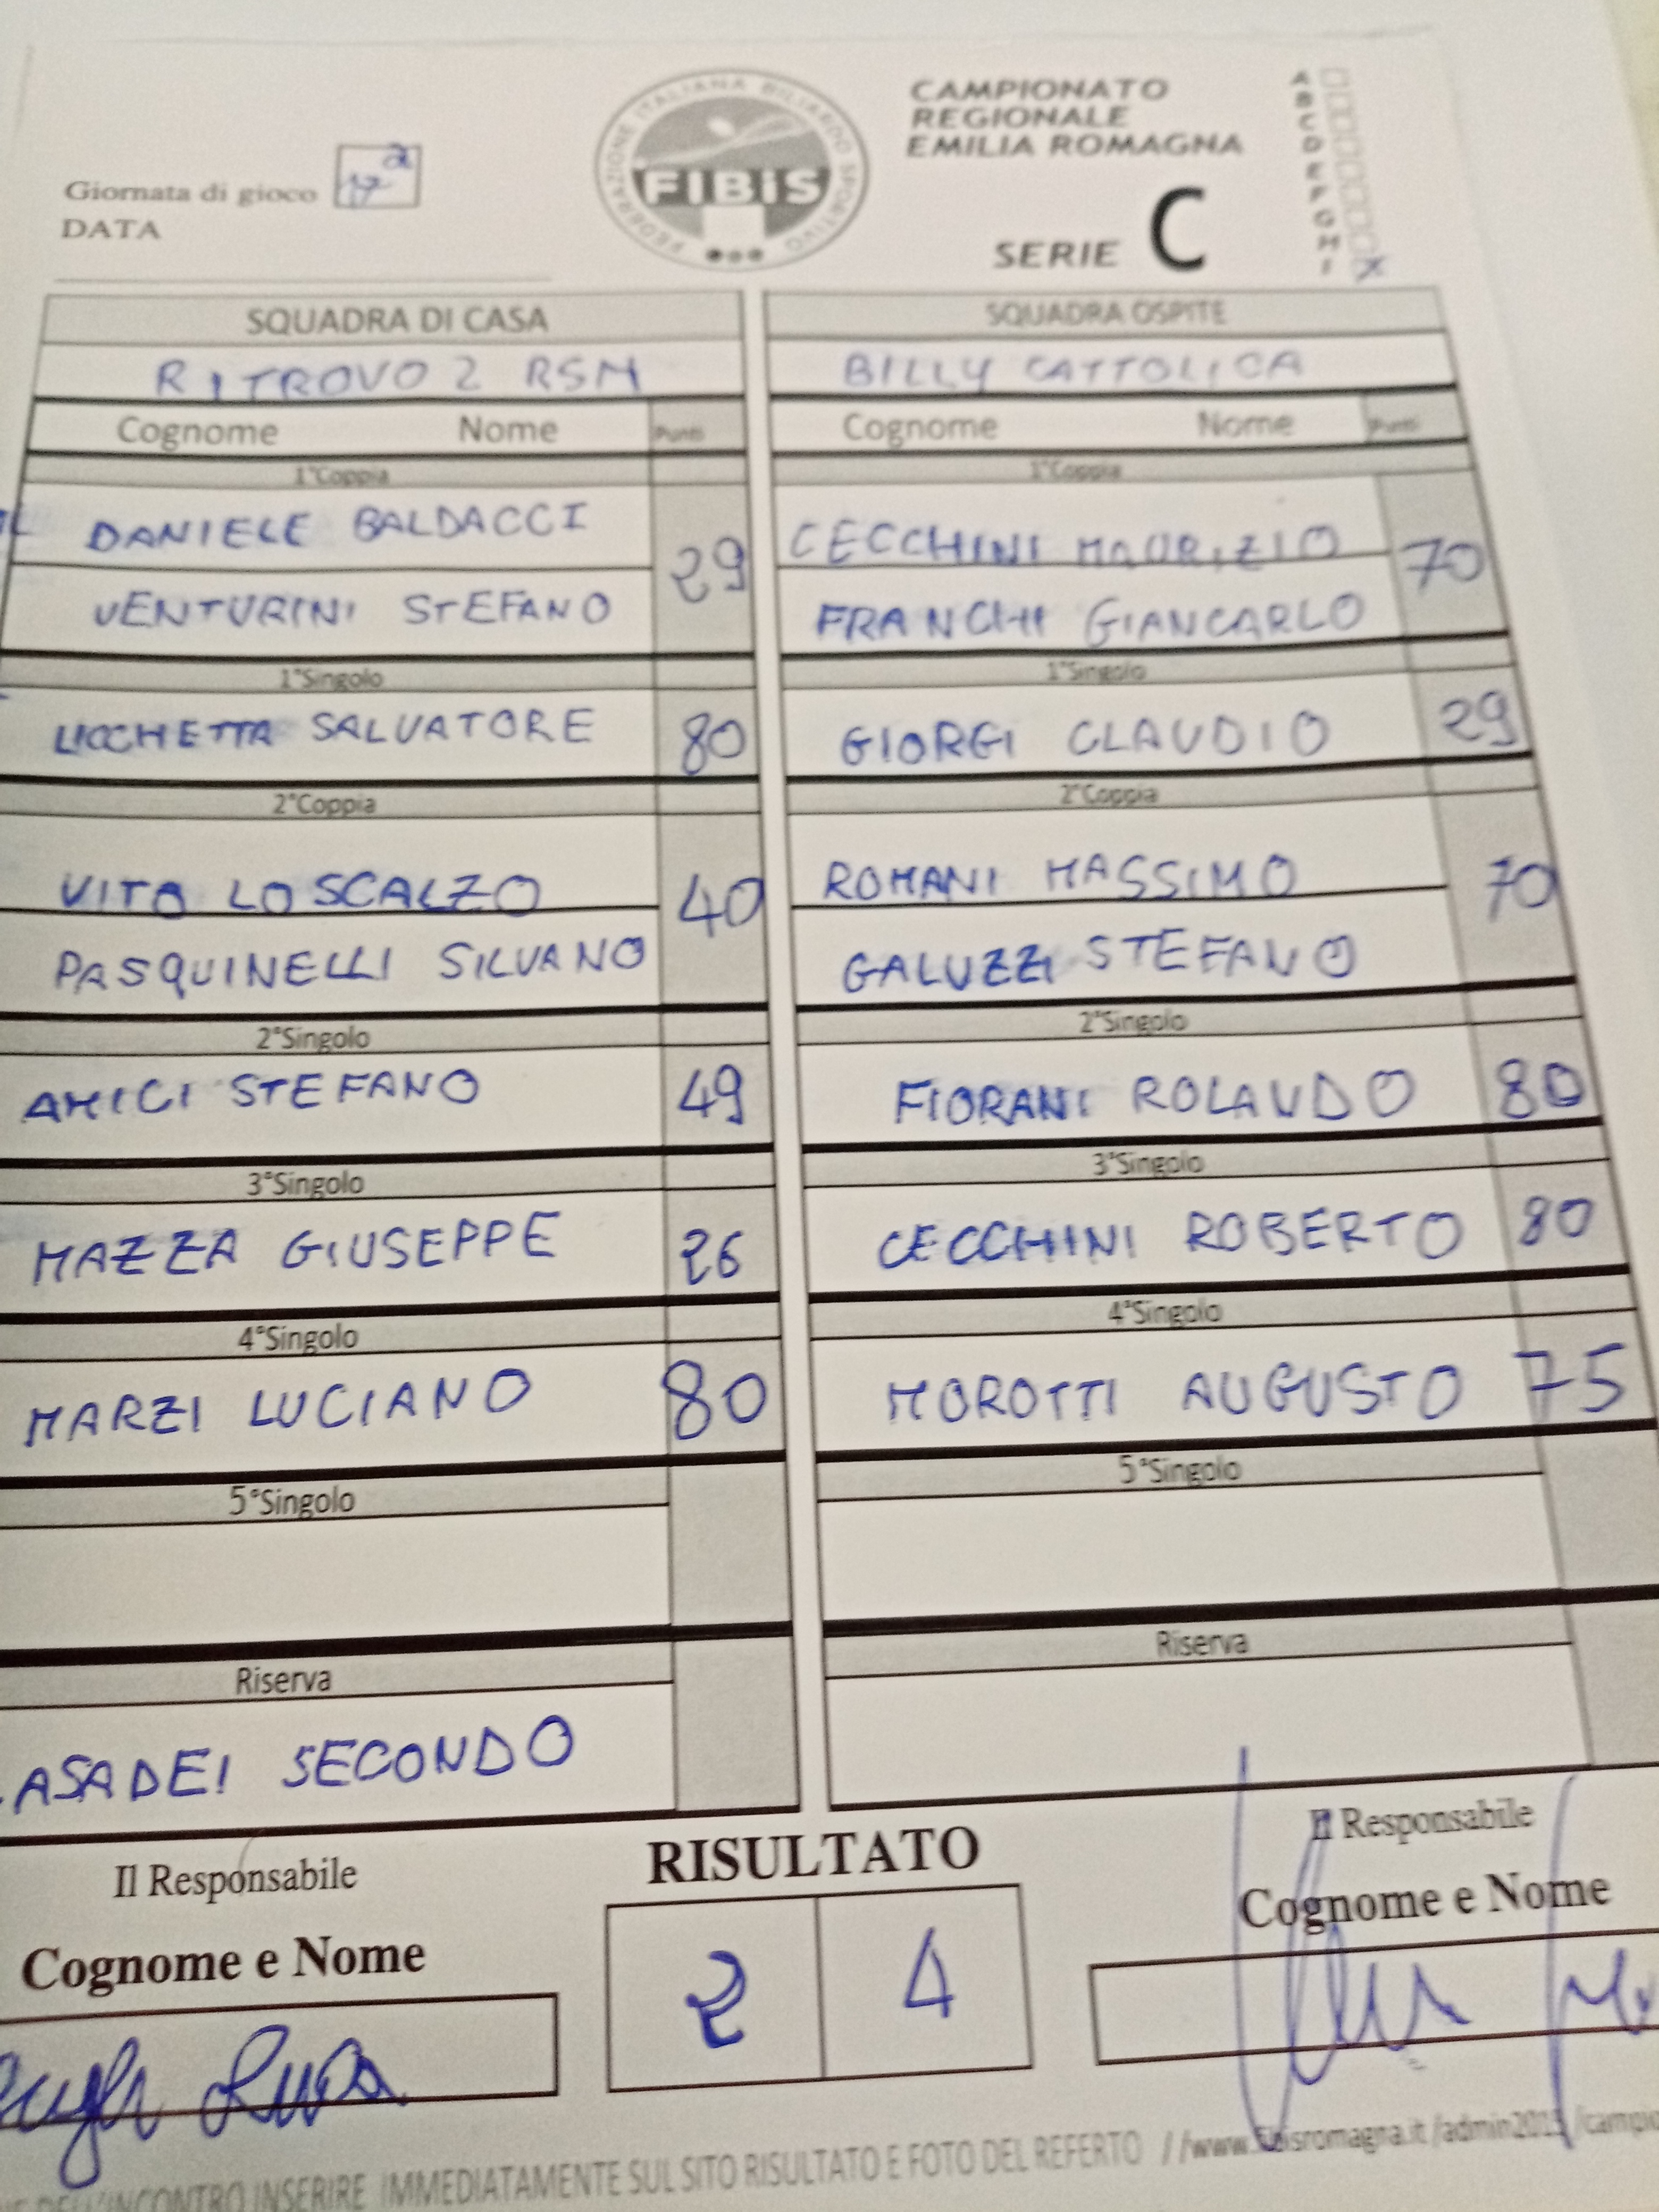 CAMPIONATO
REGIONALE
EMILIA ROMAGNA
SERIE C
A
B
C
D
E
F
G
H
I X
FEDERAZIONE ITALIANA BILIARDO SPORTIVO
FIBiS
Giornata di gioco 17ª
DATA
SQUADRA DI CASA SQUADRA OSPITE
RITROVO 2 RSM BILLY CATTOLICA
Cognome Nome Punti Cognome Nome Punti
1°Coppia 1°Coppia
DANIELE BALDACCI 29 CECCHINI MAURIZIO 70
VENTURINI STEFANO FRANCHI GIANCARLO
1°Singolo 1°Singolo
LICCHETTA SALVATORE 80 GIORGI CLAUDIO 29
2°Coppia 2°Coppia
VITO LO SCALZO 40 ROMANI MASSIMO 70
PASQUINELLI SILVANO GALUZZI STEFANO
2°Singolo 2°Singolo
AMICI STEFANO 49 FIORANI ROLANDO 80
3°Singolo 3°Singolo
MAZZA GIUSEPPE 26 CECCHINI ROBERTO 80
4°Singolo 4°Singolo
MARZI LUCIANO 80 MOROTTI AUGUSTO 75
5°Singolo 5°Singolo
Riserva Riserva
ASADEI SECONDO
Il Responsabile RISULTATO Il Responsabile
Cognome e Nome 2 4 Cognome e Nome
DELL'INCONTRO INSERIRE IMMEDIATAMENTE SUL SITO RISULTATO E FOTO DEL REFERTO //www.fibisromagna.it/admin2015/campio